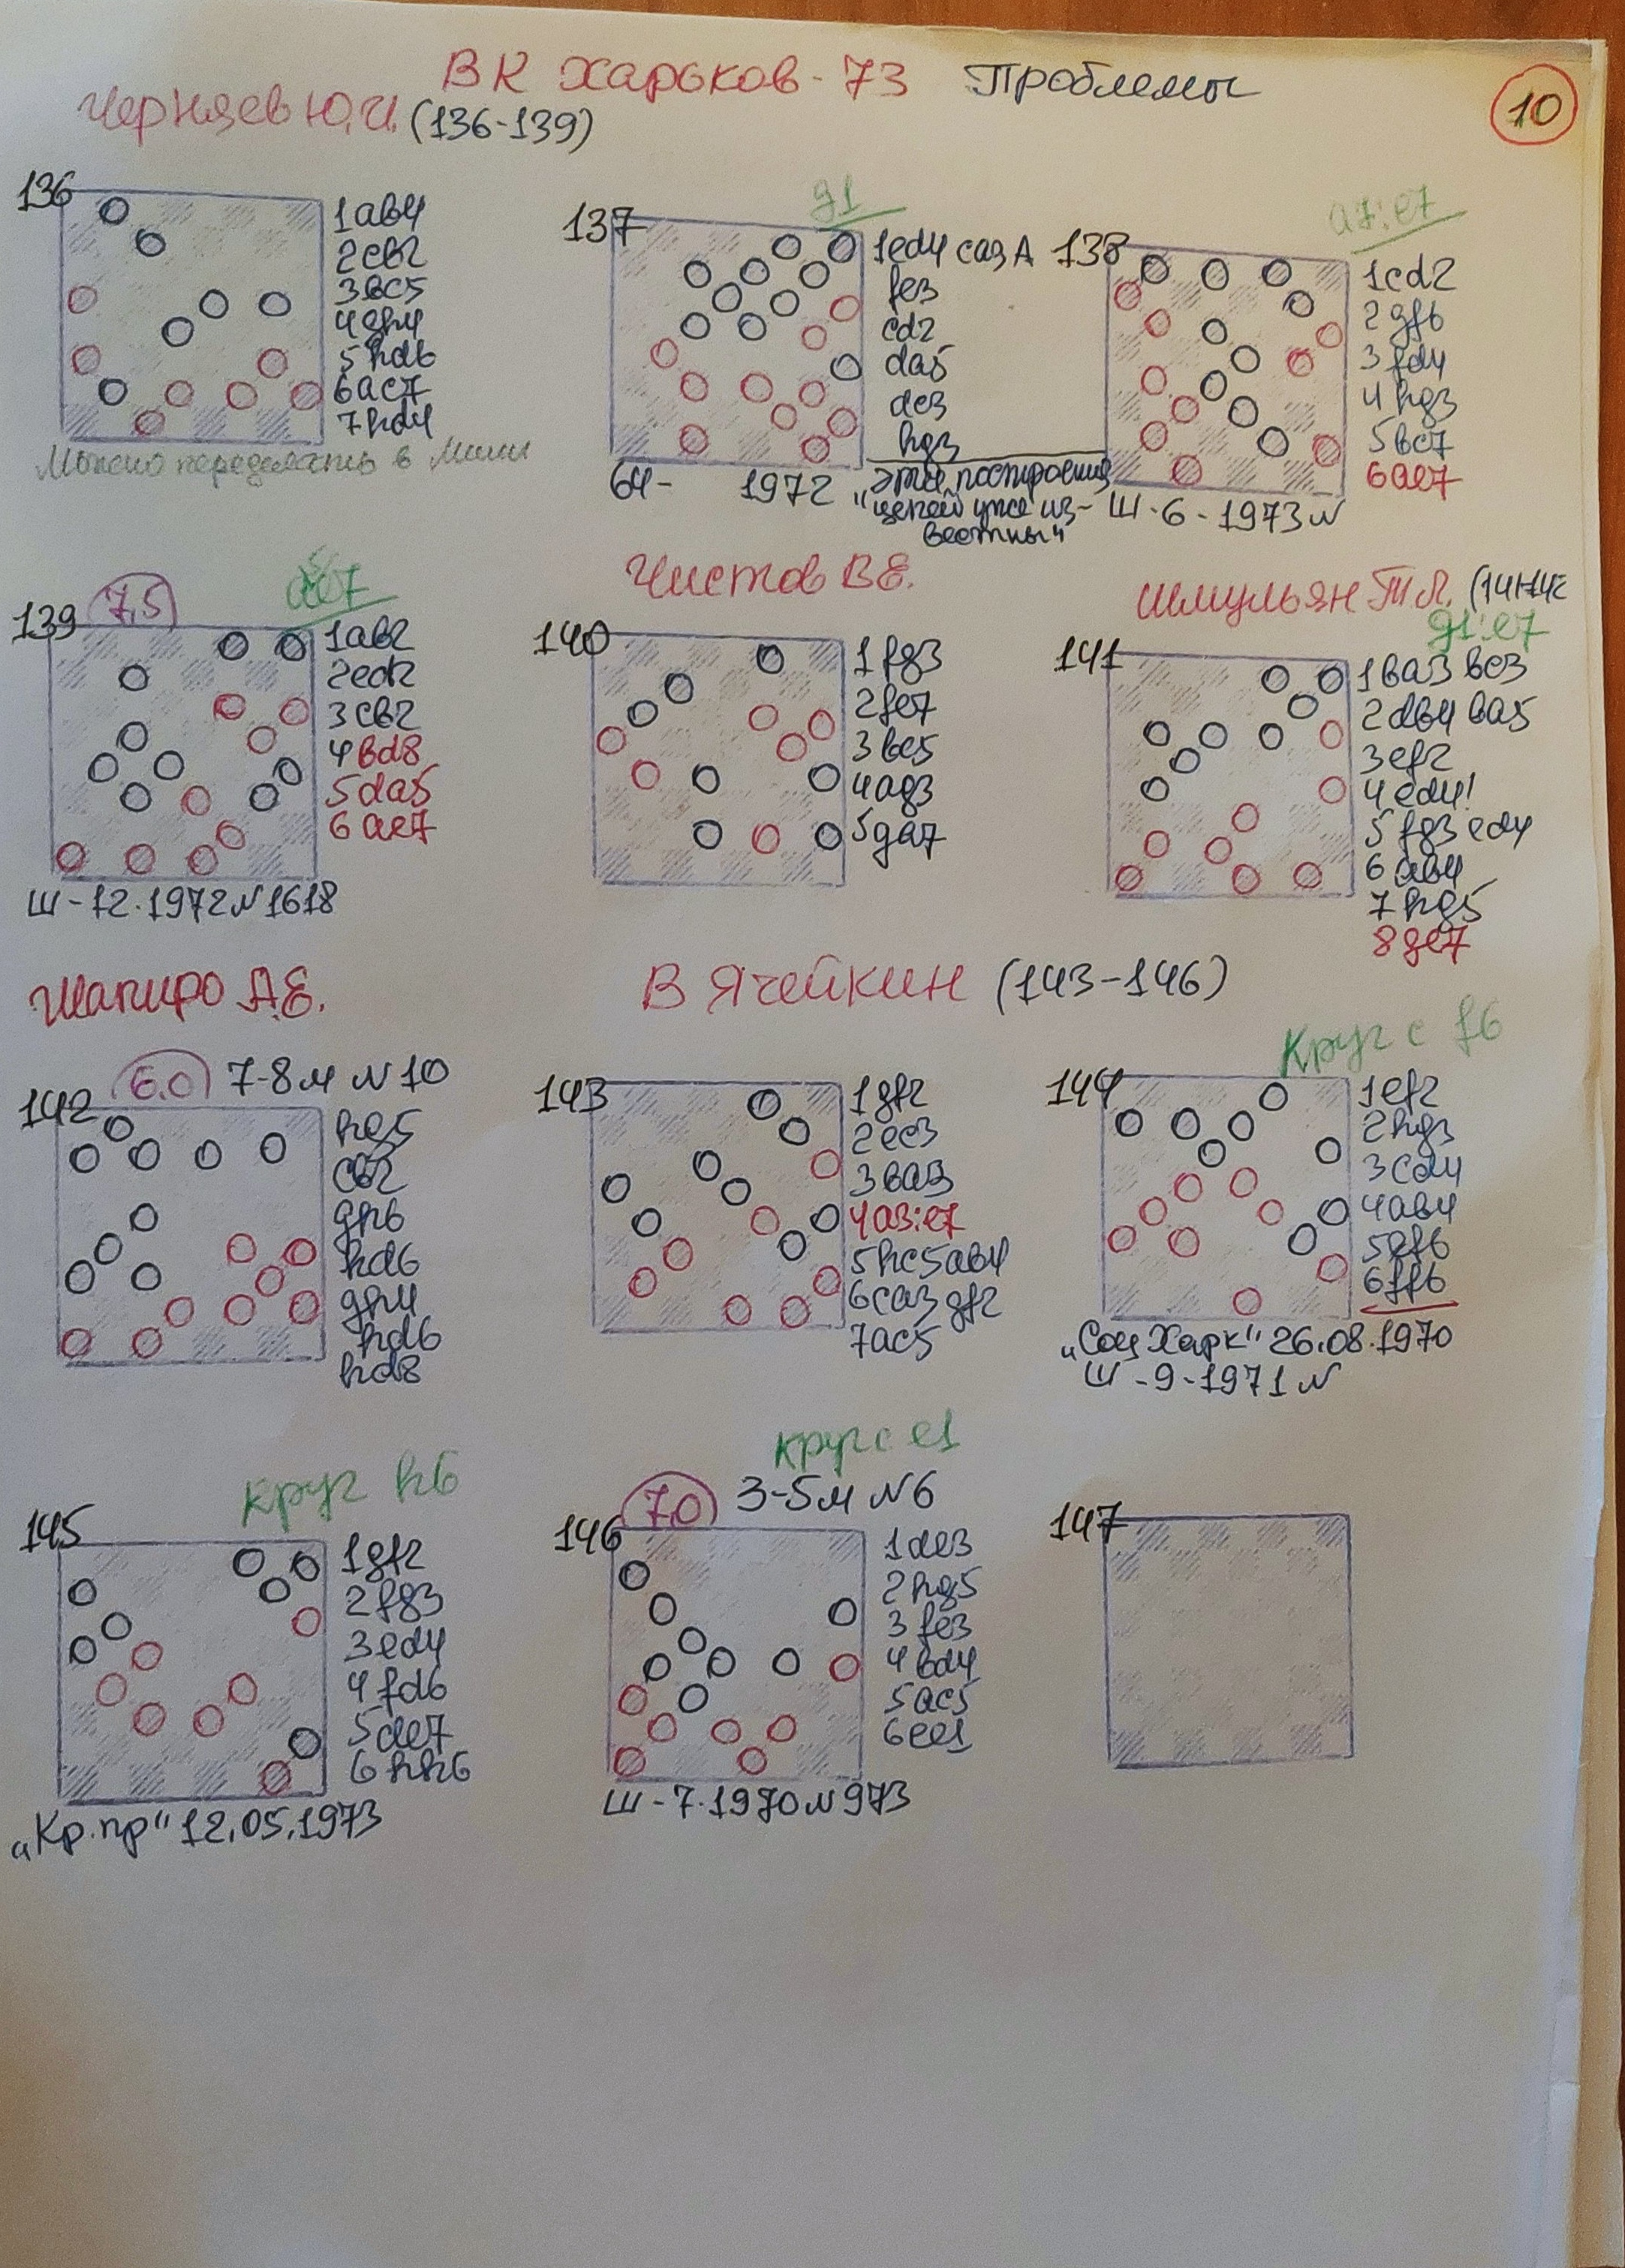 ВК Харьков-73 Проблемы
10
Черняев Ю.И. (136-139)
136
1ab4
2cb2
3bc5
4gh4
5hd6
6ac7
7hd4
Можно переделать в мини
g1
137
1ed4 ca3 A
fe3
cd2
da5
de3
hg3
64- 1972
"эти построения
цепей уже из-
вестны"
a7:e7
138
1cd2
2gf6
3fd4
4hg3
5bc7
6ae7
Ш-6-1973 N
139
7,5
1ab2
2ed2
3cb2
4bd8
5da5
6ae7
Ш-12.1972 N1618
Чистов В.Е.
140
1fg3
2fe7
3bc5
4ag3
5ga7
Шмульян Т.Л. (141-142
g1:e7
141
1ba3 bc3
2db4 ba5
3ef2
4ed4!
5fg3 ed4
6ab4
7hg5
8ge7
Шапиро А.Е.
142
6.0
7-8м N10
hg5
cb2
gh6
hd6
gh4
hd6
hd8
В Ячейкин (143-146)
143
1gf2
2ec3
3ba3
4a3:e7
5hc5 ab4
6ca3 gf2
7ac5
Круг с f6
144
1ef2
2hg3
3cd4
4ab4
5gf6
6ff6
"Соц Харк" 26.08.1970
Ш-9-1971 N
Круг h6
145
1gf2
2fg3
3ed4
4fd6
5de7
6hh6
"Кр.пр" 12.05.1973
круг с e1
146
7,0
3-5м N6
1de3
2hg5
3fe3
4bd4
5ac5
6ee1
Ш-7.1970 N973
147